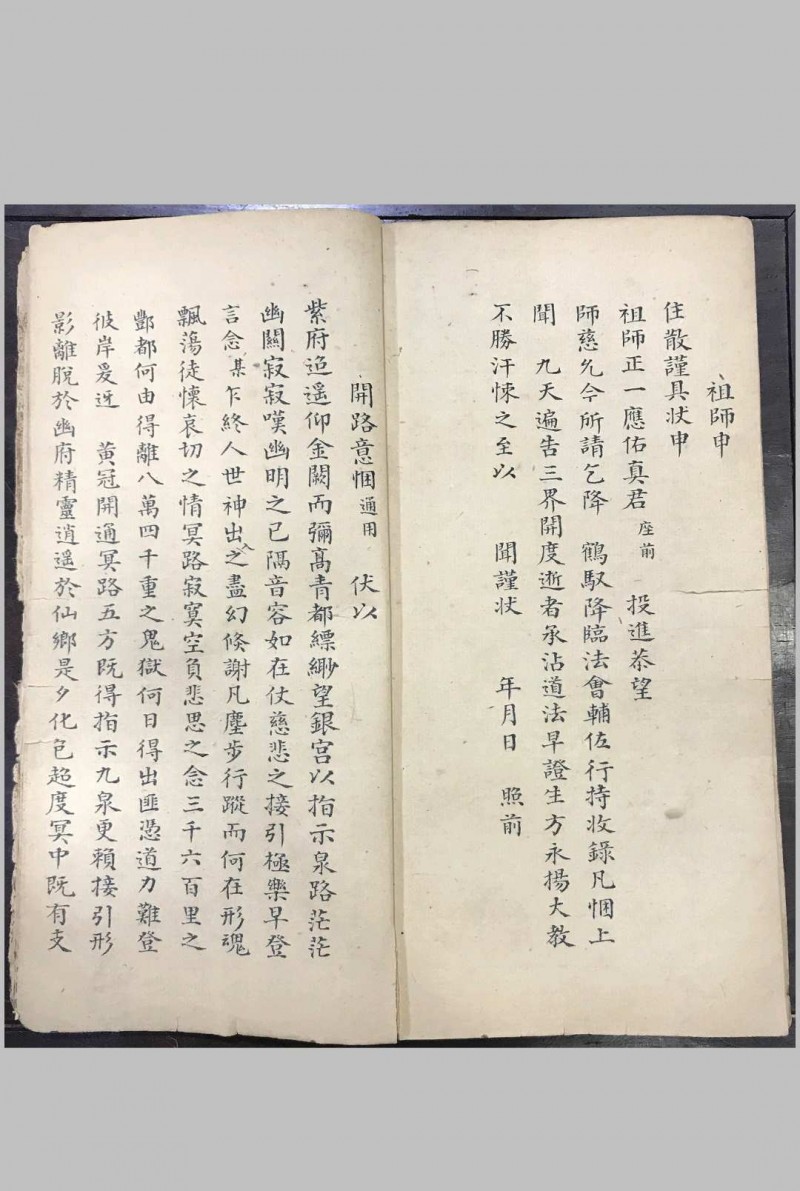 祖師申
住散謹具状申
祖師正一應佑真君座前 投進恭望
師慈允今所請乞降 鶴馭降臨法會輔佐行持收錄凡悃上
聞 九天遍告三界開度逝者承沾道法早證生方永揚大教
不勝汗悚之至以 聞謹状 年月日 照前
開路意悃通用 伏以
紫府迢遥仰金闕而彌高青都縹緲望銀宫以指示泉路茫茫
幽關寂寂嘆幽明之已隔音容如在仗慈悲之接引極樂早登
言念某乍終人世神出之盡幻倏謝凡塵步行蹤而何在形魂
飄蕩徒懷哀切之情冥路寂寞空負悲思之念三千六百里之
酆都何由得離八萬四千重之鬼獄何日得出匪憑道力難登
彼岸爰迓 黄冠開通冥路五方既得指示九泉更賴接引形
影離脱於幽府精靈逍遥於仙鄉是夕化包超度冥中既有支